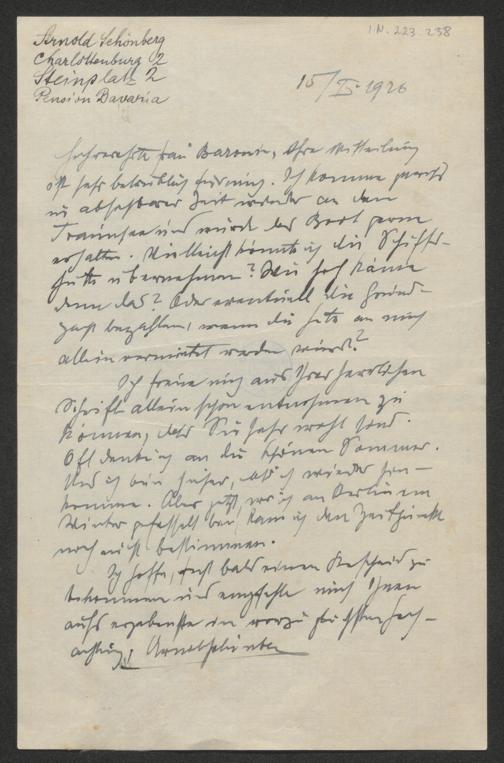 I.N. 223.238
Arnold Schönberg
Charlottenburg 2
Steinplatz 2
Pension Bavaria
15/II. 1926
Sehrverehrte Frau Baronin, Ihre Mitteilung
ist sehr betrüblich für mich. Ich komme gewiss
in absehbarer Zeit wieder an den
Traunsee und würde das Boot gerne
erhalten. Vielleicht könnte ich die Schiffs-
hütte übernehmen? Wie hoch käme
denn das? Oder eventuell die Grund-
pacht bezahlen, wenn die Hütte an mich
allein vermietet werden würde?
Ich freue mich aus Ihrer herrlichen
Schrift allein schon entnehmen zu
können, dass Sie sehr wohl sind.
Oft denke ich an die schönen Sommer.
Und ich bin sicher, dass ich wieder hin-
komme. Aber jetzt, wo ich an Berlin im
Winter gefesselt bin, kann ich den Zeitpunkt
noch nicht bestimmen.
Ich hoffe, recht bald einen Bescheid zu
bekommen und empfehle mich Ihnen
aufs ergebenste in vorzüglichster Hoch-
achtung, Arnold Schönberg